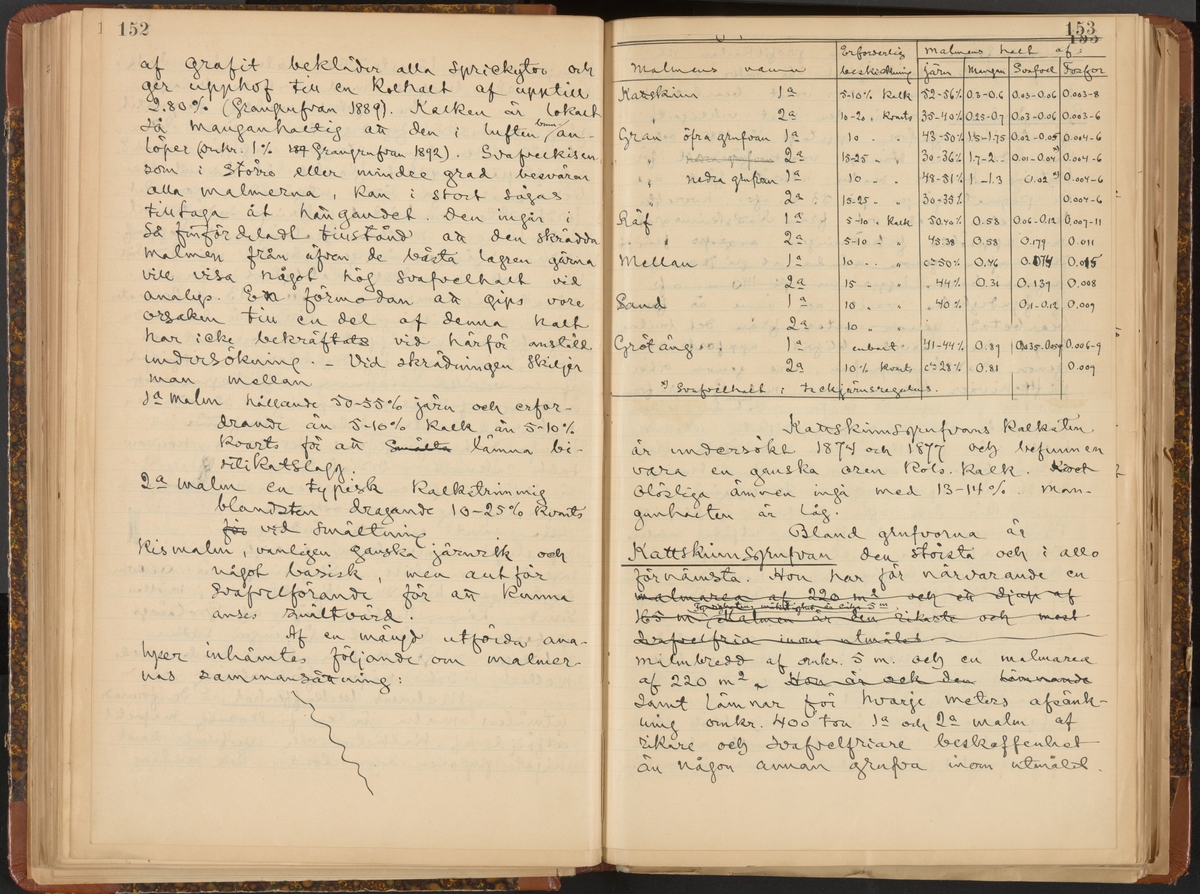 152
af grafit bekläder alla sprickytor och
ger upphof till en kolhalt af upptill
2.80% (Grangrufvan 1889). Kalken är lokalt
så manganhaltig att den i luften brun an-
löper (omkr. 1% Grangrufvan 1892). Svafvelkisen
som i större eller mindre grad besvärar
alla malmerna, kan i stort sägas
tilltaga åt hängandet. Den ingår i
så finfördeladt tillstånd att den skrädda
malmen från äfven de bästa lagren gärna
vill visa något hög svafvelhalt vid
analys. En förmodan att gips vore
orsaken till en del af denna halt
har icke bekräftats vid härför anställd
undersökning. - Vid skrädningen skiljer
man mellan
1a malm hållande 50-55% järn och erfor-
drande än 5-10% kalk än 5-10%
kvarts för att smälta lämna bi-
silikatslagg.
2a malm en typisk kalkstrimmig
blandsten dragande 10-25% kvarts
för vid smältning.
Kismalm, vanligen ganska järnrik och
något basisk, men allt för
svafvelförande för att kunna
anses smältvärd.
Af en mängd utförda ana-
lyser inhämtas följande om malmer-
nas sammansättning:
153
Malmens namn | Erforderlig beskickning | Malmens halt af:
järn | Mangan | Svafvel | Fosfor
Kattskinn 1a | 5-10% kalk | 52-56% | 0.3-0.6 | 0.03-0.06 | 0.003-8
" 2a | 10-20 " kvarts | 35-40% | 0.25-0.7 | 0.03-0.06 | 0.003-6
Gran öfra grufvan 1a | 10 " " | 43-50% | 1.5-1.75 | 0.02-0.05 | 0.004-6
" 2a | 15-25 " " | 30-36% | 1.7-2 | 0.01-0.04 x) | 0.004-6
" nedra grufvan 1a | 10 " " | 48-51% | 1.-1.3 | 0.02 x) | 0.004-6
" 2a | 15-25 " " | 30-35% | | | 0.004-6
Räf 1a | 5-10 " kalk | 50.40% | 0.58 | 0.06-0.12 | 0.007-11
" 2a | 5-10 " " | 45.38 | 0.58 | 0.179 | 0.011
Mellan 1a | 10 " " | ca 50% | 0.46 | 0.074 | 0.015
2a | 15 " " | " 44% | 0.31 | 0.139 | 0.008
Sand 1a | 10 " | " 40% | | 0.1-0.12 | 0.009
2a | 10 "
Grötäng 1a | enbart | 41-44% | 0.89 | 0.035-0.059 | 0.006-9
2a | 10% kvarts | ca 28% | 0.81 | | 0.009
x) Svafvelhalt i tackjärnsregulus.
Kattskinnsgrufvans kalksten
är undersökt 1874 och 1877 och befunnen
vara en ganska oren kols. kalk.
olösliga ämnen ingå med 13-14%. Man-
ganhalten är låg.
Bland grufvorna är
Kattskinnsgrufvan den största och i allo
förnämsta. Hon har för närvarande en
malmarea af 220 m² och ett djup af
165 m. Malmen är den rikaste och mest
svafvelfria inom utmålet
malmbredd af omkr. 5 m. och en malmarea
af 220 m² Hon är och den
samt lämnar för hvarje meters afsänk-
ning omkr. 400 ton 1a och 2a malm af
rikare och svafvelfriare beskaffenhet
än någon annan grufva inom utmålet.